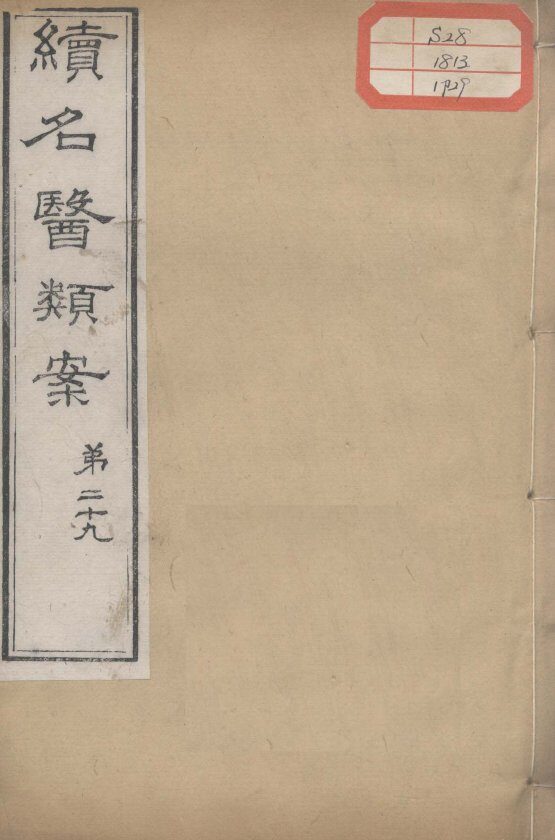 續名醫類案
弟二十九
S28
1813
1929